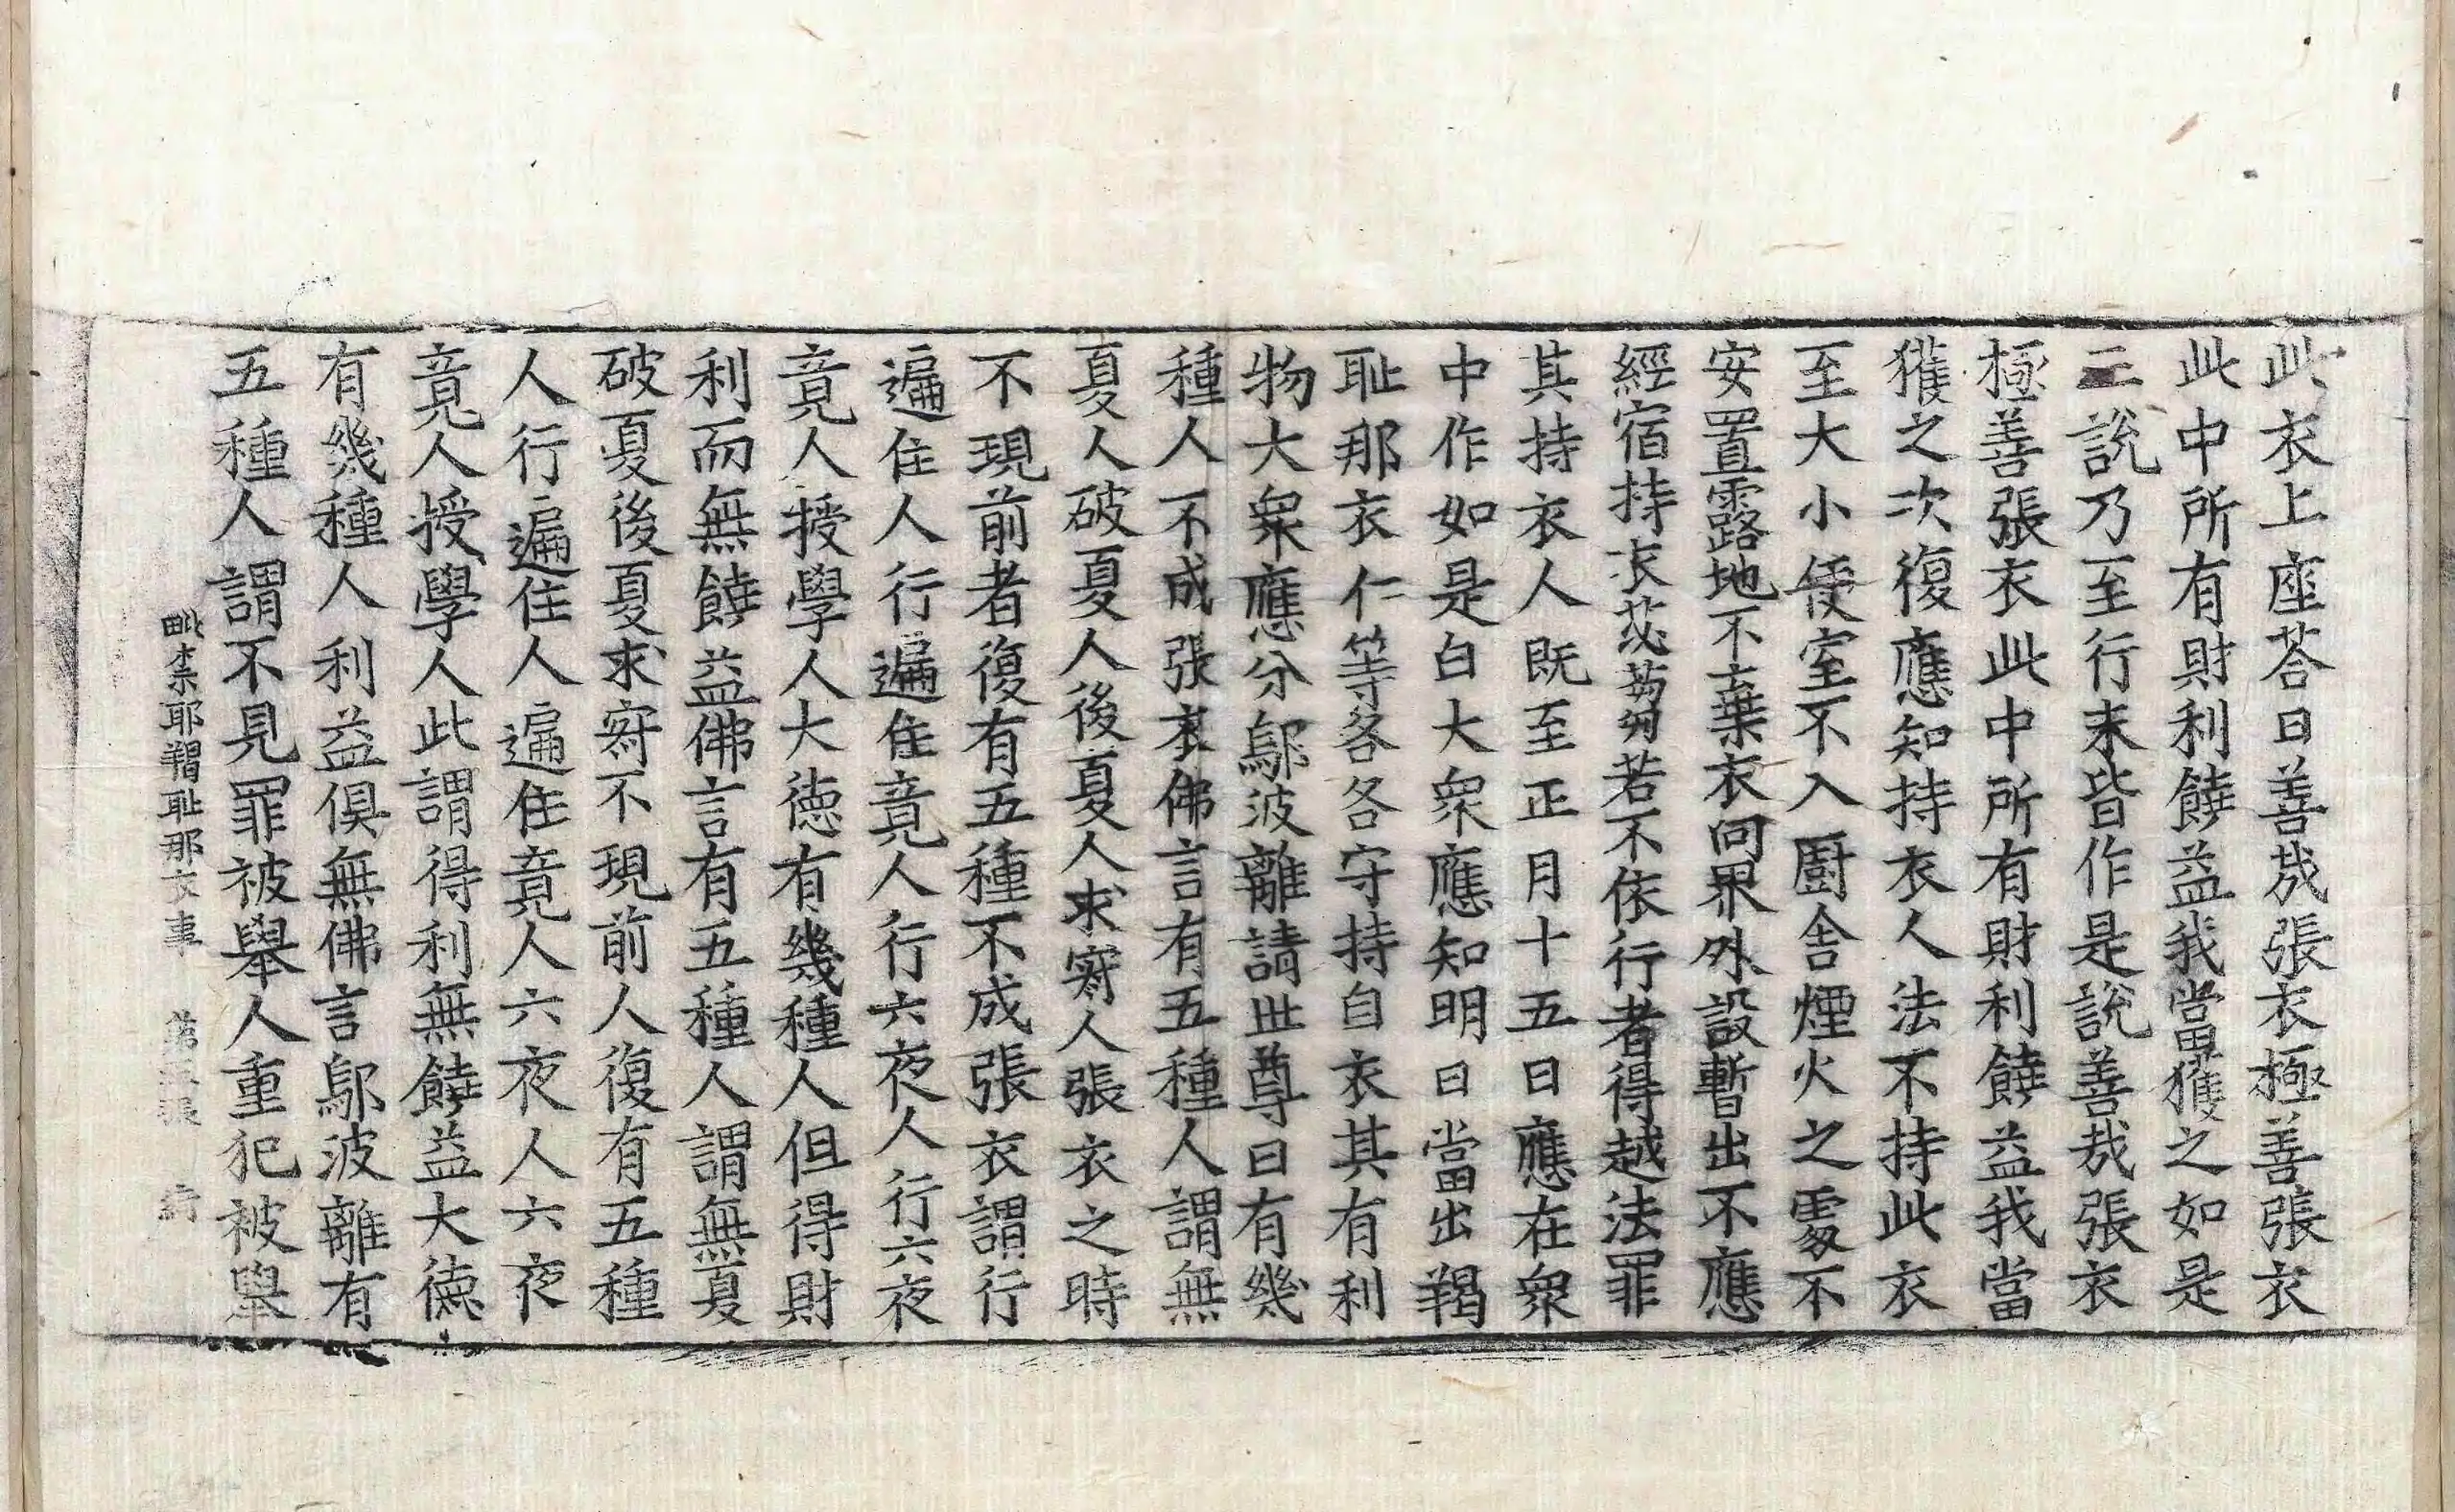 此衣上座荅曰善㢤張衣極善張衣
此中所有財利饒益我當獲之如是
三說乃至行末皆作是說善㢤張衣
極善張衣此中所有財利饒益我當
獲之次復應知持衣人法不持此衣
至大小便室不入廚舎煙火之處不
安置露地不棄衣向界外設暫出不應
經宿持衣苾芻若不依行者得越法罪
其持衣人既至正月十五日應在衆
中作如是白大衆應知明日當出羯
耻那衣仁等各各守持自衣其有利
物大衆應分鄔波離請世尊曰有幾
種人不成張衣佛言有五種人謂無
夏人破夏人後夏人求寂人張衣之時
不現前者復有五種不成張衣謂行
遍住人行遍住竟人行六夜人行六夜
竟人授學人大德有幾種人但得財
利而無饒益佛言有五種人謂無夏
破夏後夏求寂不現前人復有五種
人行遍住人遍住竟人六夜人六夜
竟人授學人此謂得利無饒益大德
有幾種人利益俱無佛言鄔波離有
五種人謂不見罪被舉人重犯被舉
毗柰耶羯耻那衣事 第三張